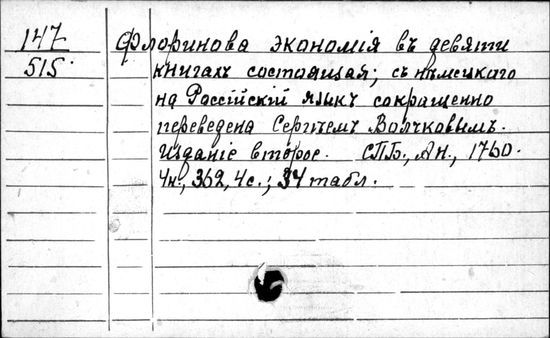 147
515.
Флоринова экономія въ девяти
книгахъ состоящая; съ нѣмецкаго
на Россійскій языкъ сокращенно
переведена Сергѣемъ Волчковымъ.
Изданіе второе. СПБ., Ан., 1760.
4н., 362, 4с.; 34 табл.